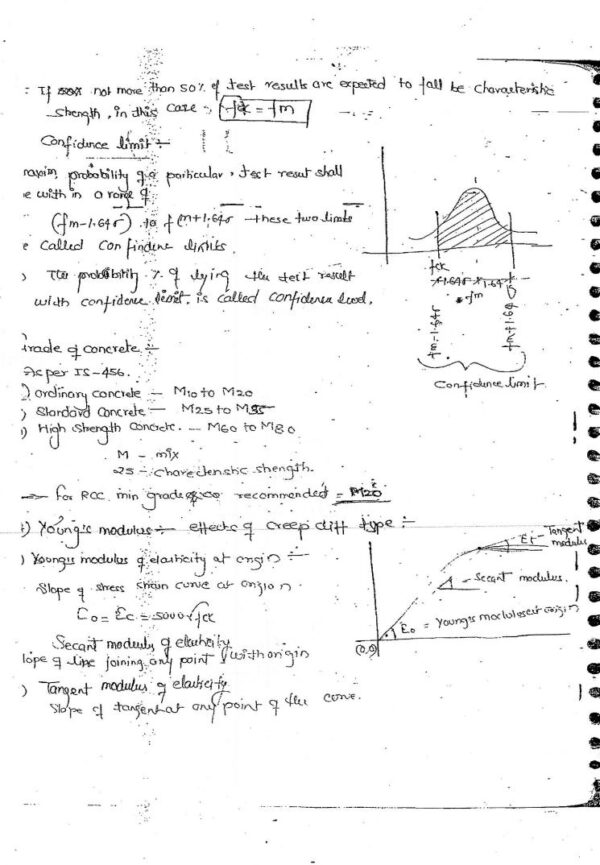 : If not more than 50% of test results are expected to fall be characteristic
strength, in this case :- fck = fm
Confidence limit :-
probability of a particular, test result shall
e with in a range of
(fm-1.64σ) to f(m+1.64σ these two limits
e called Confindene limits.
) The probability % of lying the test result
with confidence limit. is called confidence level.
fck
1.64σ 1.64σ
fm
fm-1.64σ
fm+1.64σ
Confidence limit.
rade of concrete :-
As per IS-456.
) ordinary concrete - M10 to M20
) Standard Concrete - M25 to M55
) High Strength Concrete. - M60 to M80
M - mix
25 - charecterstic strength.
for RCC min grade recommended = M20
) Young's modulus :- effects of creep diff type :-
) Youngs modulus of elasticity at origin :-
Slope of stress strain curve at origion
Eo = Ec = 5000√fck
Secant moduls of elasticity
lope of line joining any point with origin
) Tangent modulus of elasticity
Slope of tangent at any point of the curve.
Et - Tangent modulus
Secant modulus.
Eo = Youngs modulus at origin
(0,0)